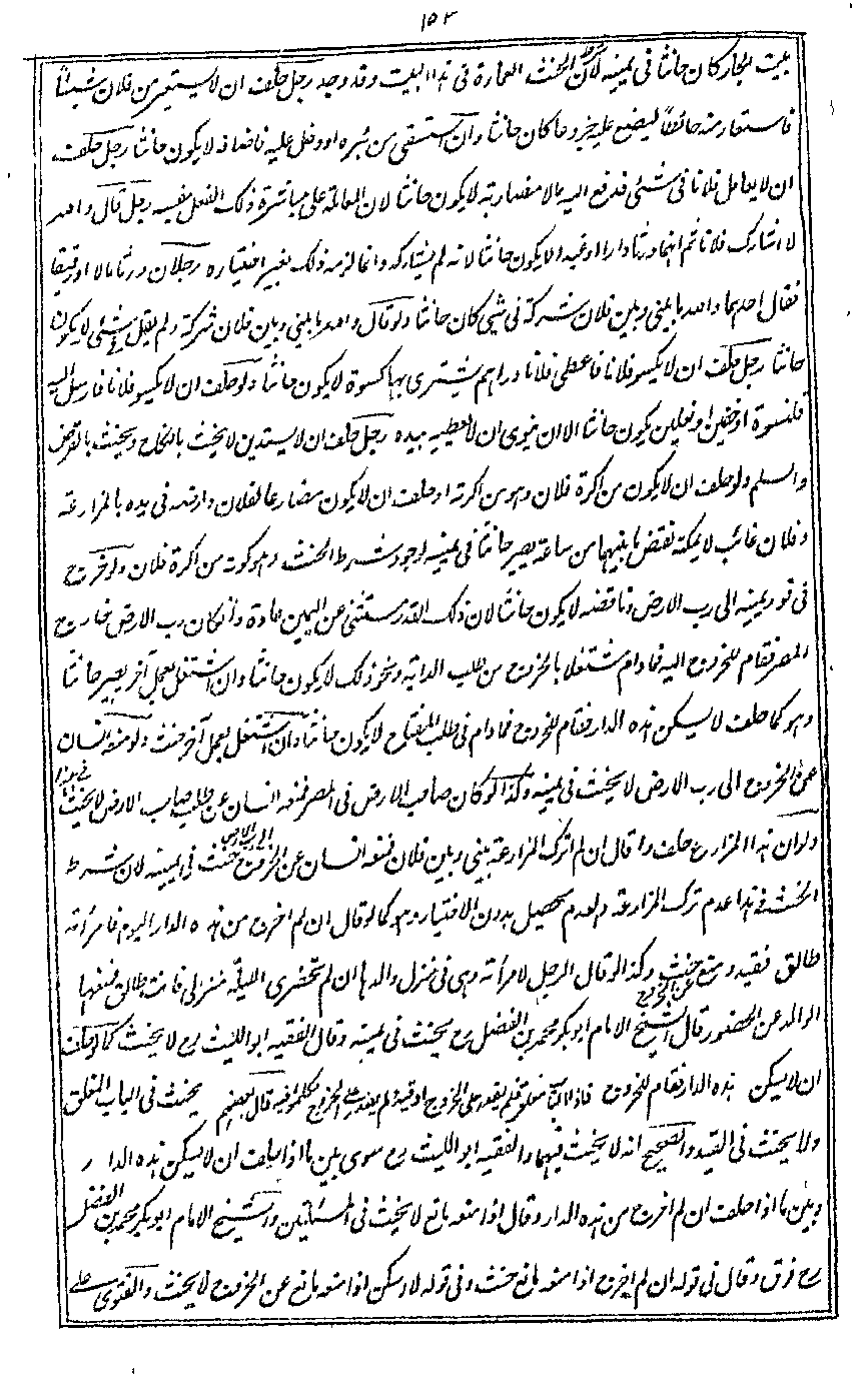 ١٥٣
بيت الجار كان حانثا في يمينه لان شرط الحنث العمارة في هذا البيت وقد وجد رجل حلف ان لا يستعير من فلان شيئا
فاستعار منه حائطا ليضع عليه جذوعا كان حانثا وان استقى من بئره او دخل عليه فاضافه لا يكون حانثا رجل حلف
ان لا يعامل فلانا في شئ فدفع اليه مالا مضاربة لا يكون حانثا لان المعاملة على مباشرة ذلك الفعل بنفسه رجل قال والله
لا اشارك فلانا ثم انهما ورثا دارا او عبدا لا يكون حانثا لانه لم يشاركه وانما لزمه ذلك بغير اختياره رجلان ورثا مالا او رقيقا
فقال احدهما والله ما بيني وبين فلان شركة في شئ كان حانثا ولو قال والله ما بيني وبين فلان شركة ولم يقل في شئ لا يكون
حانثا رجل حلف ان لا يكسو فلانا فاعطى فلانا دراهم يشتري بها كسوة لا يكون حانثا ولو حلف ان لا يكسو فلانا فارسل اليه
قلنسوة او خفين او نعلين يكون حانثا الا ان ينوي ان لا يعطيه بيده رجل حلف ان لا يستدين لا يحنث بالنكاح ويحنث بالقرض
والسلم ولو حلف ان لا يكون من اكرة فلان وهو من اكرته او حلف ان لا يكون مضارعا لفلان وارضه في يده بالمزارعة
وفلان غائب لا يمكنه نقض ما بينهما من ساعته يصير حانثا في يمينه لوجود شرط الحنث وهو كونه من اكرة فلان ولو خرج
في فور يمينه الى رب الارض وناقضه لا يكون حانثا لان ذلك القدر مستثنى عن اليمين عادة وان كان رب الارض خارج
المصر فقام للخروج اليه فما دام مشتغلا بالخروج من طلب الدابة ونحو ذلك لا يكون حانثا وان اشتغل بعمل آخر يصير حانثا
وهو كما حلف لا يسكن هذه الدار فقام للخروج فما دام في طلب المفتاح لا يكون حانثا وان اشتغل بعمل آخر حنث ولو منعه انسان
عن الخروج الى رب الارض لا يحنث في يمينه وكذا لو كان صاحب الارض في المصر فمنعه انسان عن طلب صاحب الارض لا يحنث في يمينه
ولو ان هذا المزارع حلف وقال ان لم اترك المزارعة بيني وبين فلان فمنعه انسان عن الخروج الى رب الارض حنث في يمينه لان شرط
الحنث في هذا عدم ترك المزارعة والعدم يحصل بدون الاختيار وهو كما لو قال ان لم اخرج من هذه الدار اليوم فامرأته
طالق فقيد ومنع عن الخروج حنث وكذا لو قال الرجل لامرأته وهي في منزل والدها ان لم تحضري الليلة منزلي فانت طالق فمنعها
الوالد عن الحضور قال الشيخ الامام ابو بكر محمد بن الفضل رح يحنث في يمينه وقال الفقيه ابو الليث رح لا يحنث كما لو حلف
ان لا يسكن هذه الدار فقام للخروج فاذا الباب مغلق فلم يقدر على الخروج او قيد ولم يقدر على الخروج تكلموا فيه قال بعضهم يحنث في الباب المغلق
ولا يحنث في القيد والصحيح انه لا يحنث فيهما والفقيه ابو الليث رح سوى بين ما اذا حلف ان لا يسكن هذه الدار
وبين ما اذا حلف ان لم اخرج من هذه الدار وقال اذا منعه مانع لا يحنث في المسئلتين والشيخ الامام ابو بكر محمد بن الفضل
رح فرق وقال في قوله ان لم اخرج اذا منعه مانع حنث وفي قوله لا اسكن اذا منعه مانع عن الخروج لا يحنث والفتوى على